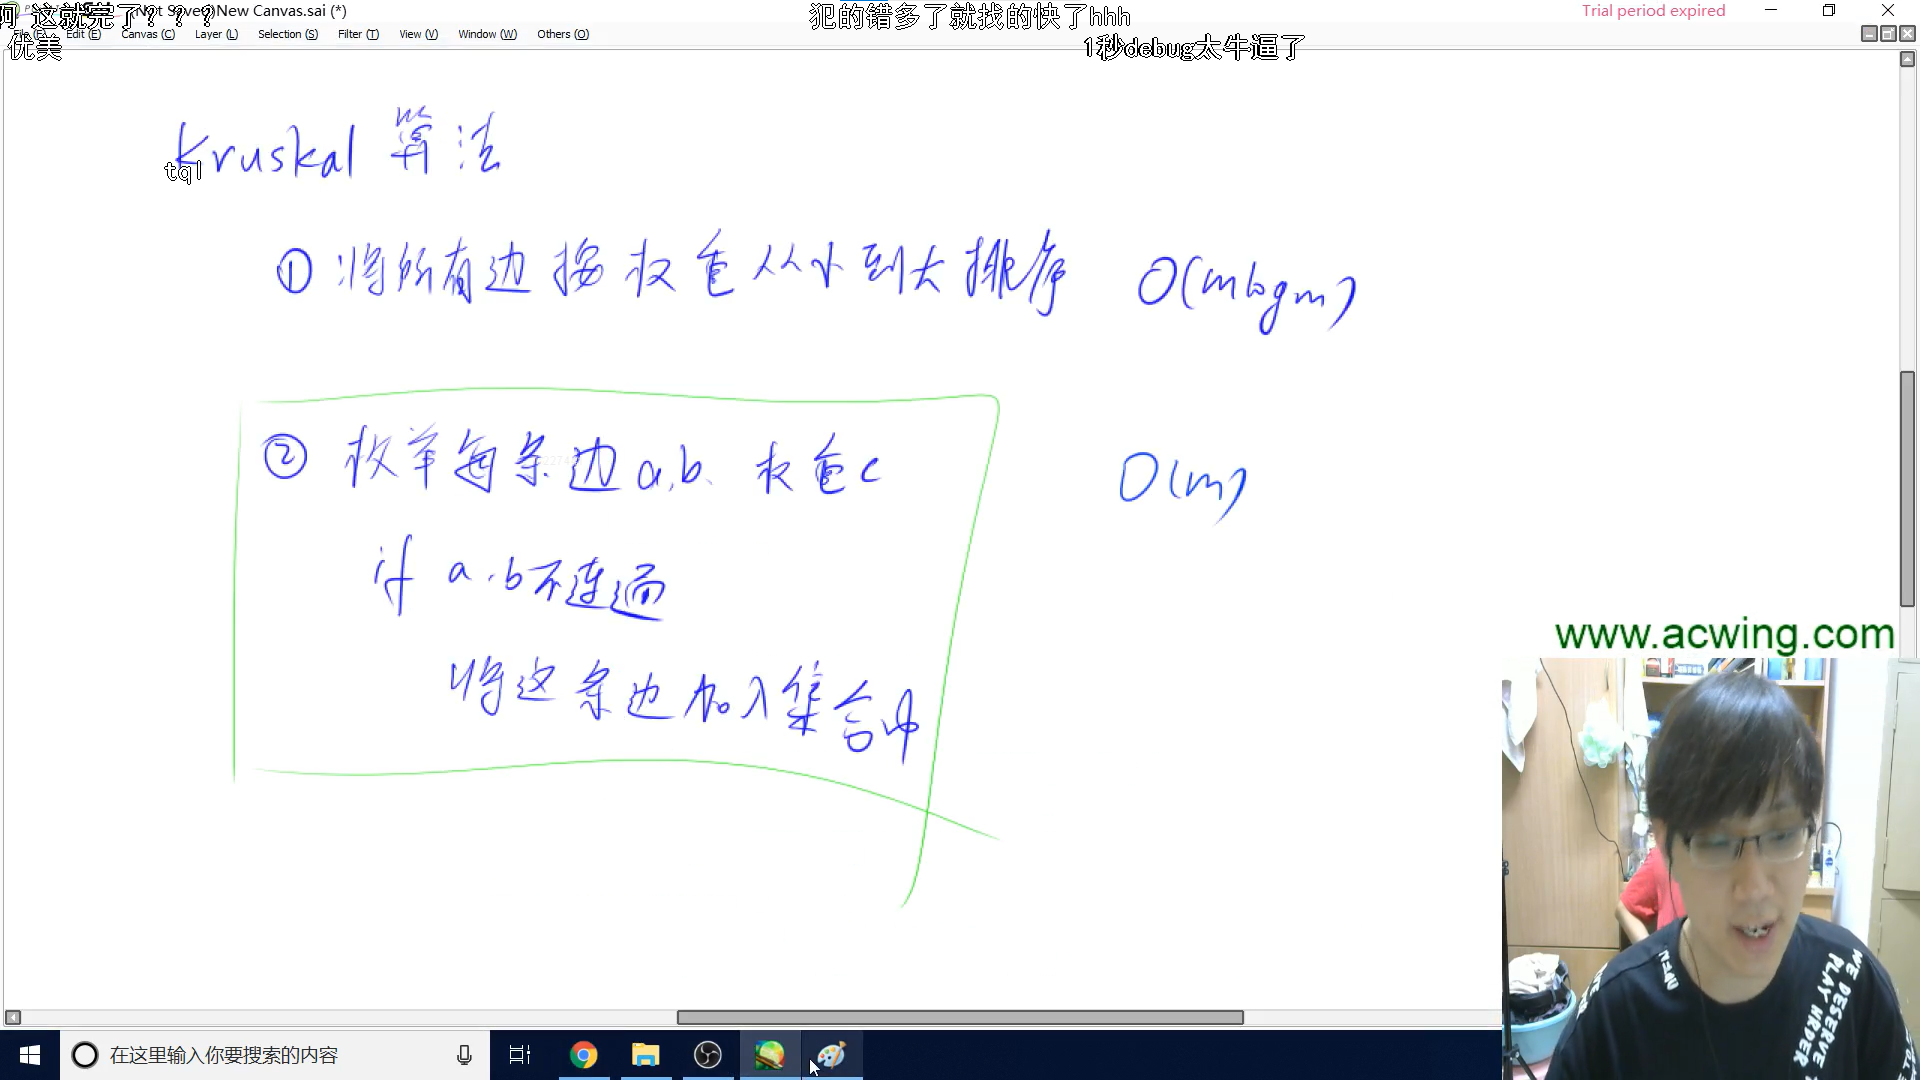 啊 这就完了？？？
(Not Saved)New Canvas.sai (*)
犯的错多了就找的快了hhh
Trial period expired
Edit (E) Canvas (C) Layer (L) Selection (S) Filter (T) View (V) Window (W) Others (O)
优美
1秒debug太牛逼了
Kruskal 算法
tql
① 将所有边按权重从小到大排序 O(mlogm)
② 枚举每条边a,b、权重c O(m)
if a,b不连通
将这条边加入集合中
www.acwing.com
WE DESERVE
PLAY HARDER
在这里输入你要搜索的内容